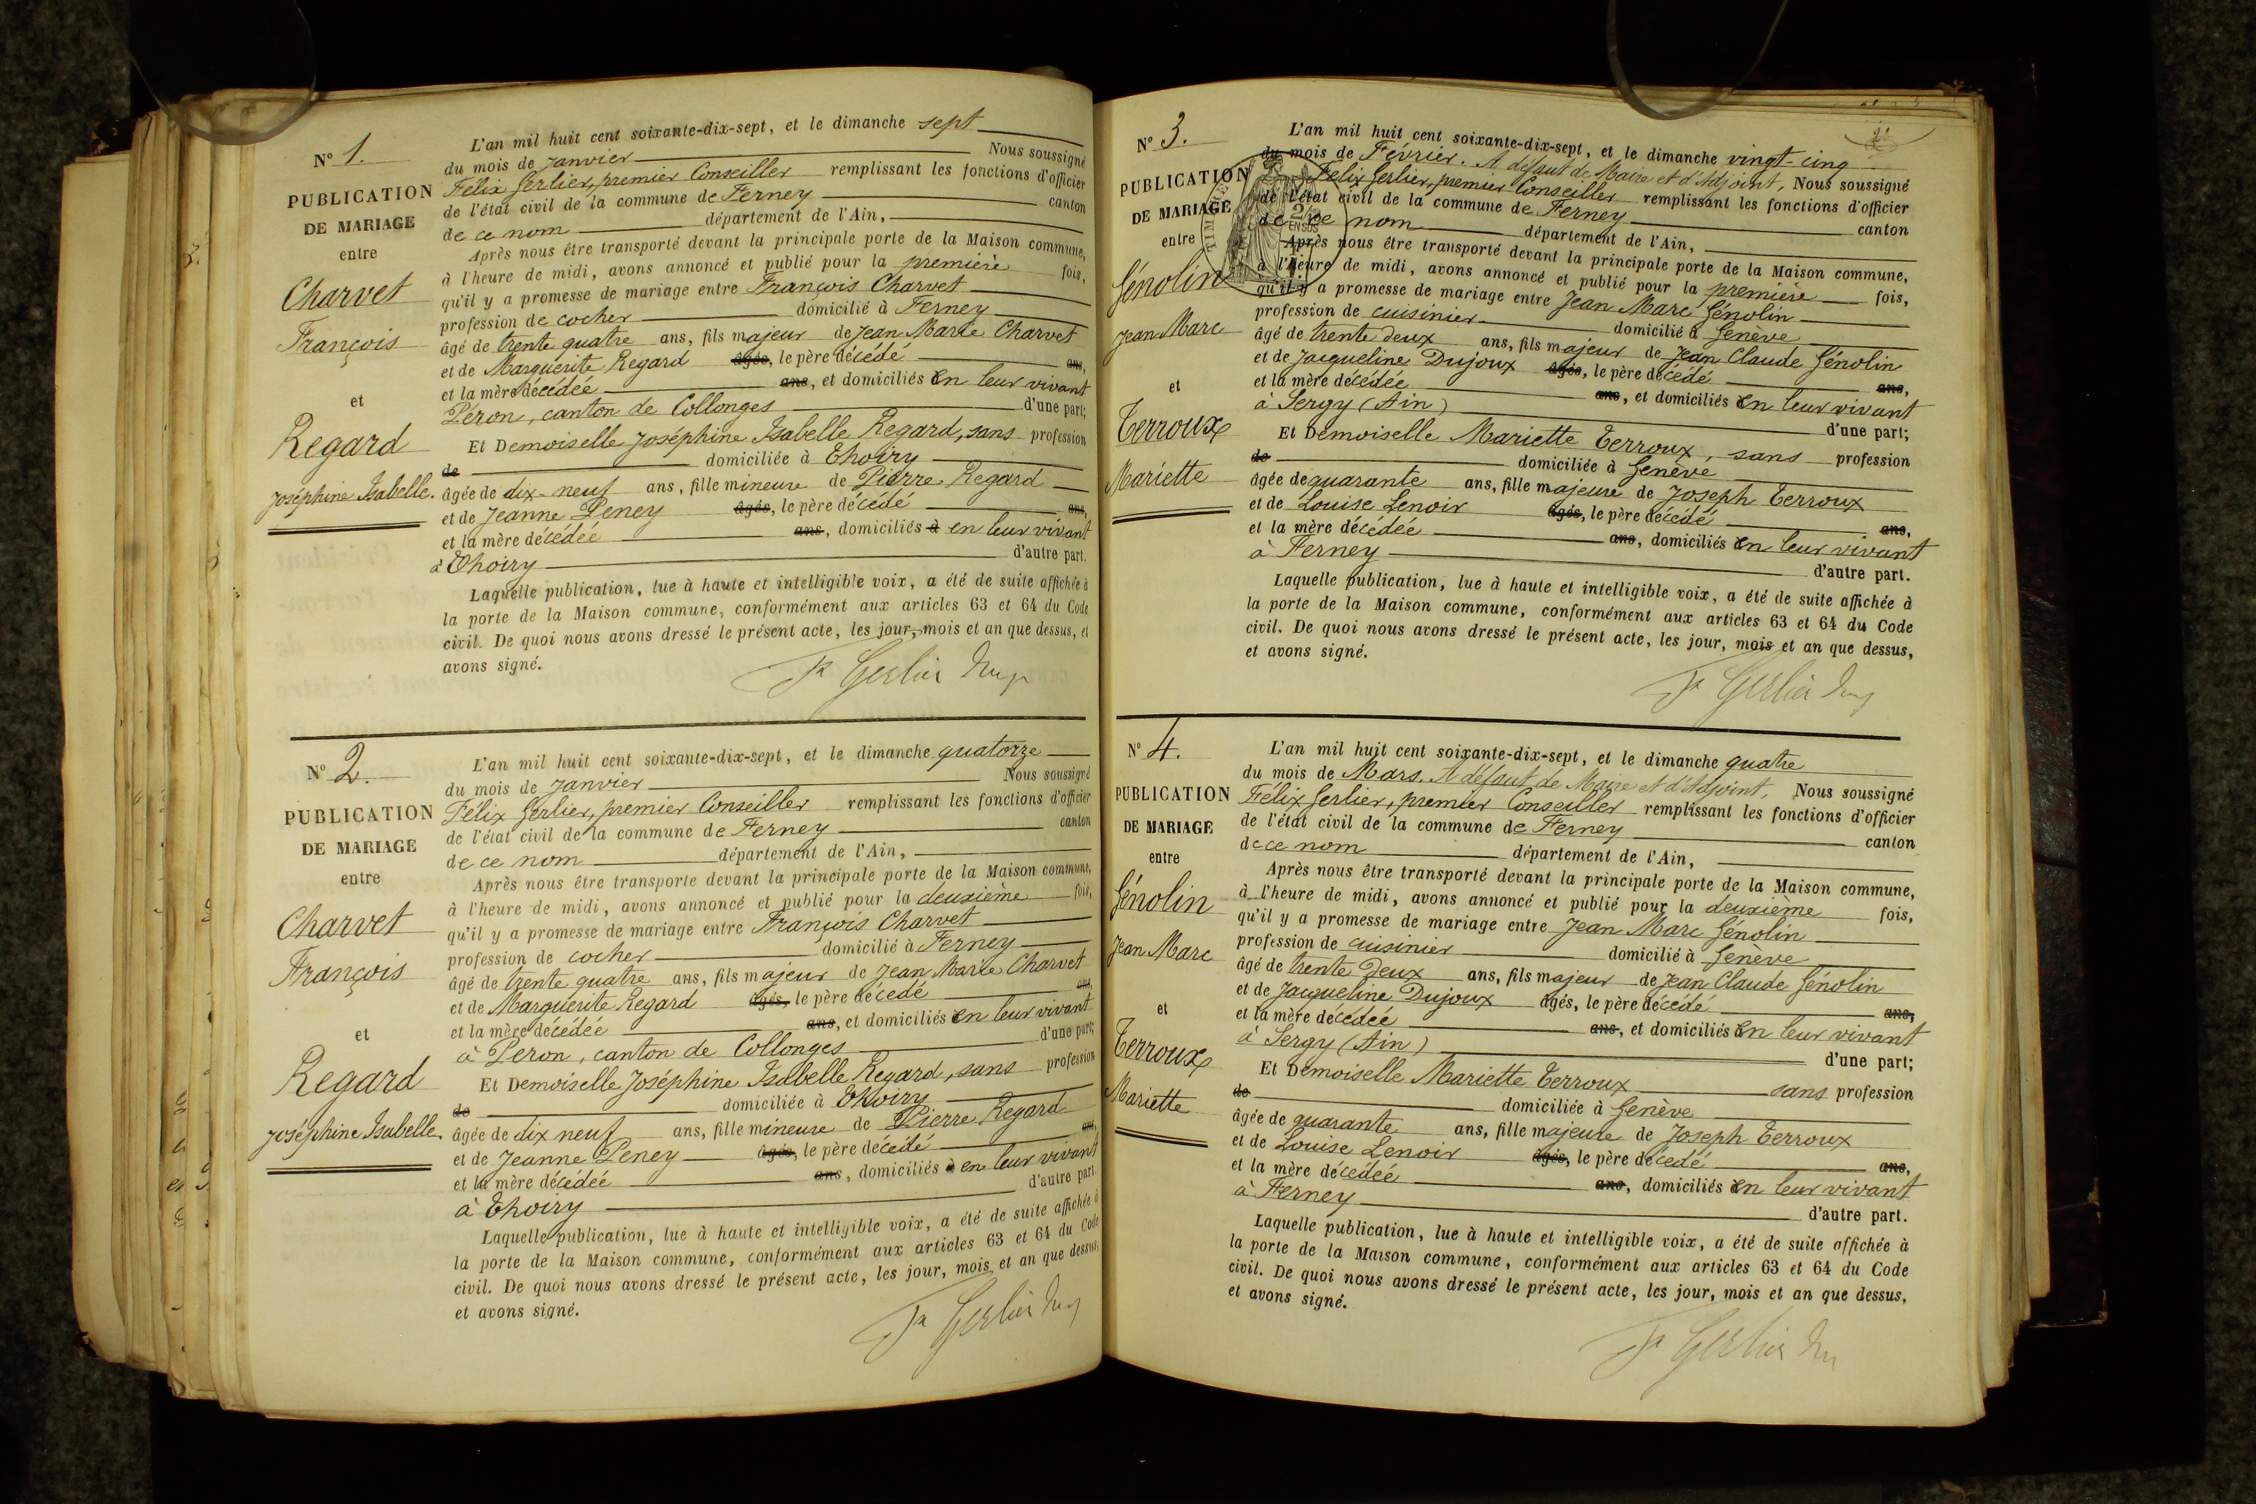 N° 1.
PUBLICATION
DE MARIAGE
entre
Charvet
François
et
Regard
Joséphine Isabelle.
L'an mil huit cent soixante-dix-sept, et le dimanche sept
du mois de Janvier Nous soussigné
Félix Gerlier, premier Conseiller remplissant les fonctions d'officier
de l'état civil de la commune de Ferney canton
de ce nom département de l'Ain,
Après nous être transporté devant la principale porte de la Maison commune,
à l'heure de midi, avons annoncé et publié pour la première fois,
qu'il y a promesse de mariage entre François Charvet
profession de cocher domicilié à Ferney
âgé de trente quatre ans, fils majeur de Jean Marie Charvet
et de Marguerite Regard âgés, le père décédé ans,
et la mère décédée ans, et domiciliés en leur vivant
Péron, canton de Collonges d'une part;
Et Demoiselle Joséphine Isabelle Regard, sans profession
de domiciliée à Thoiry
âgée de dix-neuf ans, fille mineure de Pierre Regard
et de Jeanne Peney âgés, le père décédé ans,
et la mère décédée ans, domiciliés à en leur vivant
à Thoiry d'autre part.
Laquelle publication, lue à haute et intelligible voix, a été de suite affichée à
la porte de la Maison commune, conformément aux articles 63 et 64 du Code
civil. De quoi nous avons dressé le présent acte, les jour, mois et an que dessus, et
avons signé.
Gerlier
N° 2.
PUBLICATION
DE MARIAGE
entre
Charvet
François
et
Regard
Joséphine Isabelle.
L'an mil huit cent soixante-dix-sept, et le dimanche quatorze
du mois de Janvier Nous soussigné
Félix Gerlier, premier Conseiller remplissant les fonctions d'officier
de l'état civil de la commune de Ferney canton
de ce nom département de l'Ain,
Après nous être transporté devant la principale porte de la Maison commune,
à l'heure de midi, avons annoncé et publié pour la deuxième fois,
qu'il y a promesse de mariage entre François Charvet
profession de cocher domicilié à Ferney
âgé de trente quatre ans, fils majeur de Jean Marie Charvet
et de Marguerite Regard âgés, le père décédé ans,
et la mère décédée ans, et domiciliés en leur vivant
à Péron, canton de Collonges d'une part;
Et Demoiselle Joséphine Isabelle Regard, sans profession
de domiciliée à Thoiry
âgée de dix neuf ans, fille mineure de Pierre Regard
et de Jeanne Peney âgés, le père décédé ans,
et la mère décédée ans, domiciliés à en leur vivant
à Thoiry d'autre part.
Laquelle publication, lue à haute et intelligible voix, a été de suite affichée à
la porte de la Maison commune, conformément aux articles 63 et 64 du Code
civil. De quoi nous avons dressé le présent acte, les jour, mois et an que dessus,
et avons signé.
Gerlier
N° 3.
PUBLICATION
DE MARIAGE
entre
Génolin
Jean Marc
et
Terroux
Mariette
L'an mil huit cent soixante-dix-sept, et le dimanche vingt-cinq
du mois de Février. A défaut de Maire et d'Adjoint, Nous soussigné
Félix Gerlier, premier Conseiller remplissant les fonctions d'officier
de l'état civil de la commune de Ferney canton
de ce nom département de l'Ain,
Après nous être transporté devant la principale porte de la Maison commune,
à l'heure de midi, avons annoncé et publié pour la première fois,
qu'il y a promesse de mariage entre Jean Marc Génolin
profession de cuisinier domicilié à Genève
âgé de trente deux ans, fils majeur de Jean Claude Génolin
et de Jacqueline Dujoux âgés, le père décédé ans,
et la mère décédée ans, et domiciliés en leur vivant
à Sergy (Ain) d'une part;
Et Demoiselle Mariette Terroux, sans profession
de domiciliée à Genève
âgée de quarante ans, fille majeure de Joseph Terroux
et de Louise Lenoir âgés, le père décédé ans,
et la mère décédée ans, domiciliés en leur vivant
à Ferney d'autre part.
Laquelle publication, lue à haute et intelligible voix, a été de suite affichée à
la porte de la Maison commune, conformément aux articles 63 et 64 du Code
civil. De quoi nous avons dressé le présent acte, les jour, mois et an que dessus,
et avons signé.
Gerlier
N° 4.
PUBLICATION
DE MARIAGE
entre
Génolin
Jean Marc
et
Terroux
Mariette
L'an mil huit cent soixante-dix-sept, et le dimanche quatre
du mois de Mars. A défaut de Maire et d'Adjoint, Nous soussigné
Félix Gerlier, premier Conseiller remplissant les fonctions d'officier
de l'état civil de la commune de Ferney canton
de ce nom département de l'Ain,
Après nous être transporté devant la principale porte de la Maison commune,
à l'heure de midi, avons annoncé et publié pour la deuxième fois,
qu'il y a promesse de mariage entre Jean Marc Génolin
profession de cuisinier domicilié à Genève
âgé de trente deux ans, fils majeur de Jean Claude Génolin
et de Jacqueline Dujoux âgés, le père décédé ans,
et la mère décédée ans, et domiciliés en leur vivant
à Sergy (Ain) d'une part;
Et Demoiselle Mariette Terroux sans profession
de domiciliée à Genève
âgée de quarante ans, fille majeure de Joseph Terroux
et de Louise Lenoir âgés, le père décédé ans,
et la mère décédée ans, domiciliés en leur vivant
à Ferney d'autre part.
Laquelle publication, lue à haute et intelligible voix, a été de suite affichée à
la porte de la Maison commune, conformément aux articles 63 et 64 du Code
civil. De quoi nous avons dressé le présent acte, les jour, mois et an que dessus,
et avons signé.
Gerlier